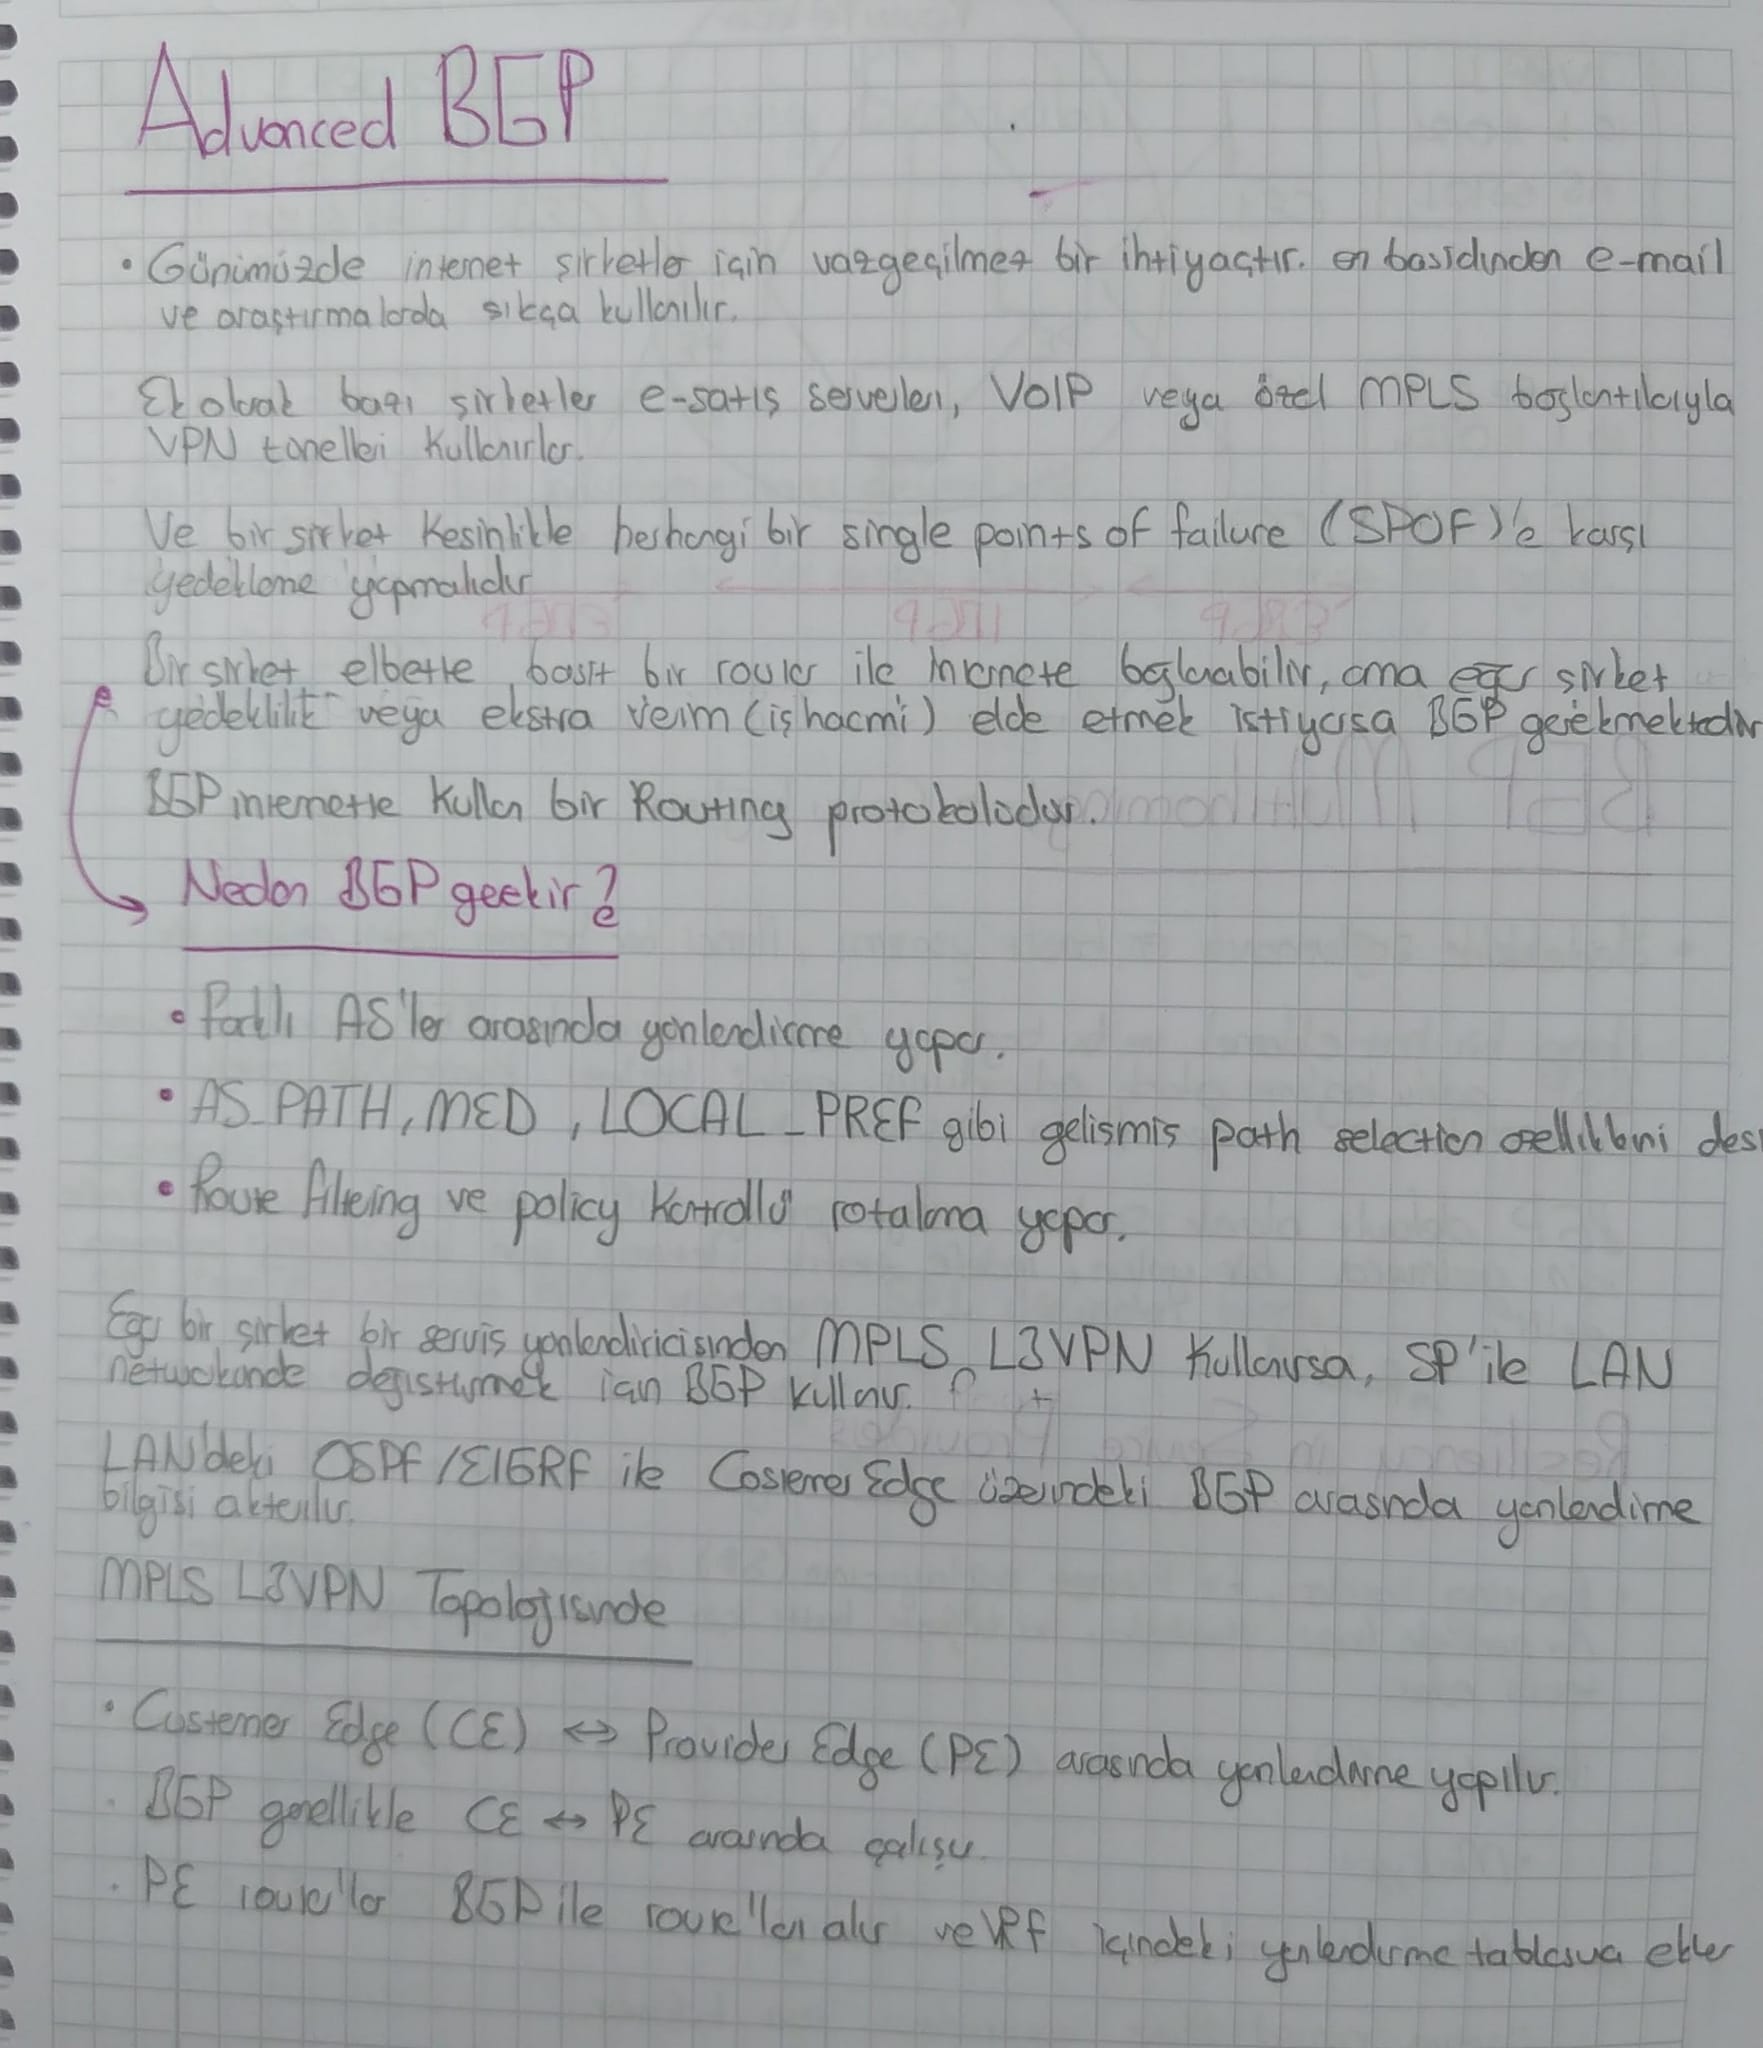 Advanced BGP
• Günümüzde internet şirketler için vazgeçilmez bir ihtiyaçtır. en basidinden e-mail
ve araştırmalarda sıkça kullanılır.
Ek olarak bazı şirketler e-satış serverleri, VOIP veya özel MPLS bağlantılarıyla
VPN tünelleri kullanırlar.
Ve bir şirket kesinlikle herhangi bir single points of failure (SPOF)'e karşı
yedekleme yapmalıdır
Bir şirket elbette basit bir router ile internete bağlanabilir, ama eğer şirket
yedeklilik veya ekstra verim (iş hacmi) elde etmek istiyorsa BGP gerekmektedir
BGP internette kullan bir Routing protokolüdür.
Neden BGP gerekir?
• Farklı AS'ler arasında yönlendirme yapar.
• AS_PATH, MED, LOCAL_PREF gibi gelişmiş path selection özelliklerini des
• Route filtering ve policy kontrollü rotalama yapar.
Eğer bir şirket bir servis yönlendiricisinden MPLS L3VPN kullanırsa, SP'ile LAN
değiştirmek için BGP kullanır.
LAN'deki OSPF/EIGRF ile Costemer Edge üzerindeki BGP arasında yönlendirme
bilgisi aktarılır.
MPLS L3VPN Topolojisinde
• Customer Edge (CE) ↔ Provider Edge (PE) arasında yönlendirme yapılır.
• BGP genellikle CE ↔ PE arasında çalışır.
• PE router'lar BGP ile route'ları alır ve VRF içindeki yönlendirme tablosuna ekler